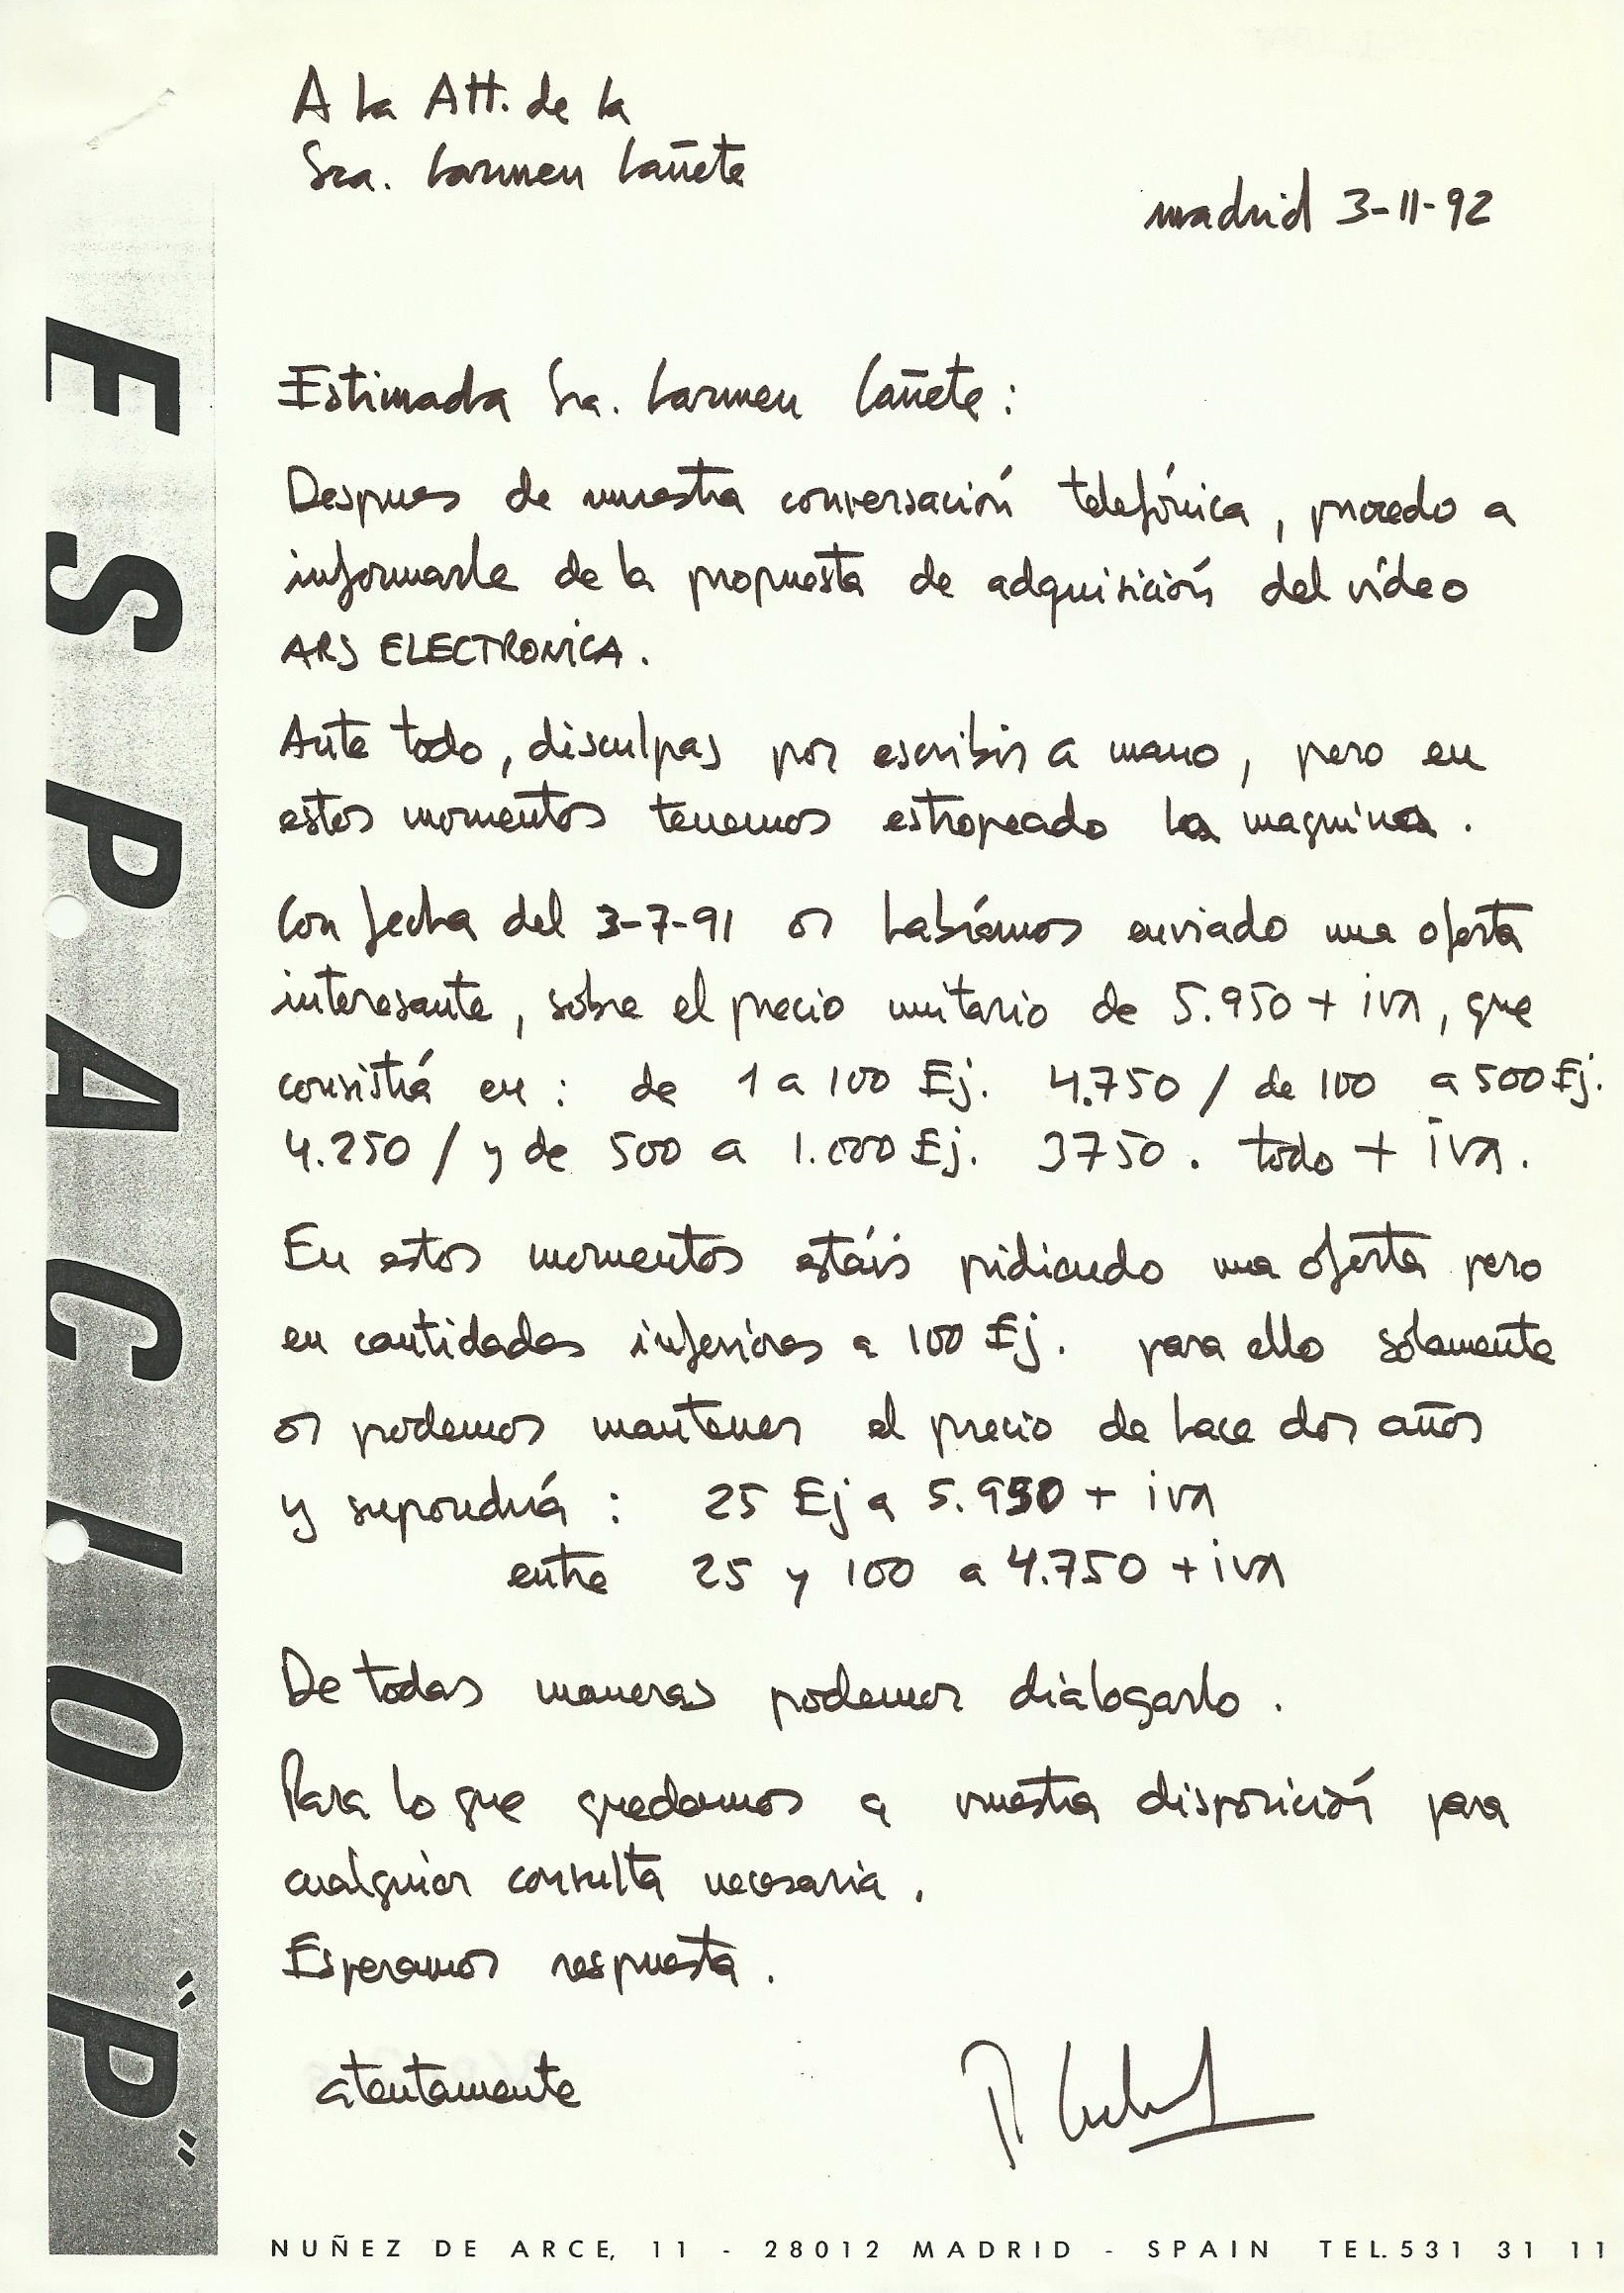 A la Att. de la
Sra. Carmen Cañete
madrid 3-11-92
Estimada Sra. Carmen Cañete:
Despues de nuestra conversación telefónica, procedo a
informarle de la propuesta de adquisición del vídeo
ARS ELECTRONICA.
Ante todo, disculpas por escribir a mano, pero en
estos momentos tenemos estropeado la maquina.
Con fecha del 3-7-91 os habíamos enviado una oferta
interesante, sobre el precio unitario de 5.950 + iva, que
consistiá en: de 1 a 100 Ej. 4.750 / de 100 a 500 Ej.
4.250 / y de 500 a 1.000 Ej. 3750. todo + iva.
En estos momentos estáis pidiendo una oferta pero
en cantidades inferiores a 100 Ej. para ello solamente
os podemos mantener el precio de hace dos años
y supondrá: 25 Ej a 5.950 + iva
entre 25 y 100 a 4.750 + iva
De todas maneras podemos dialogarlo.
Para lo que quedamos a vuestra disposición para
cualquier consulta necesaria.
Esperamos respuesta.
atentamente
ESPACIO "P"
NUÑEZ DE ARCE, 11 - 28012 MADRID - SPAIN TEL. 531 31 11